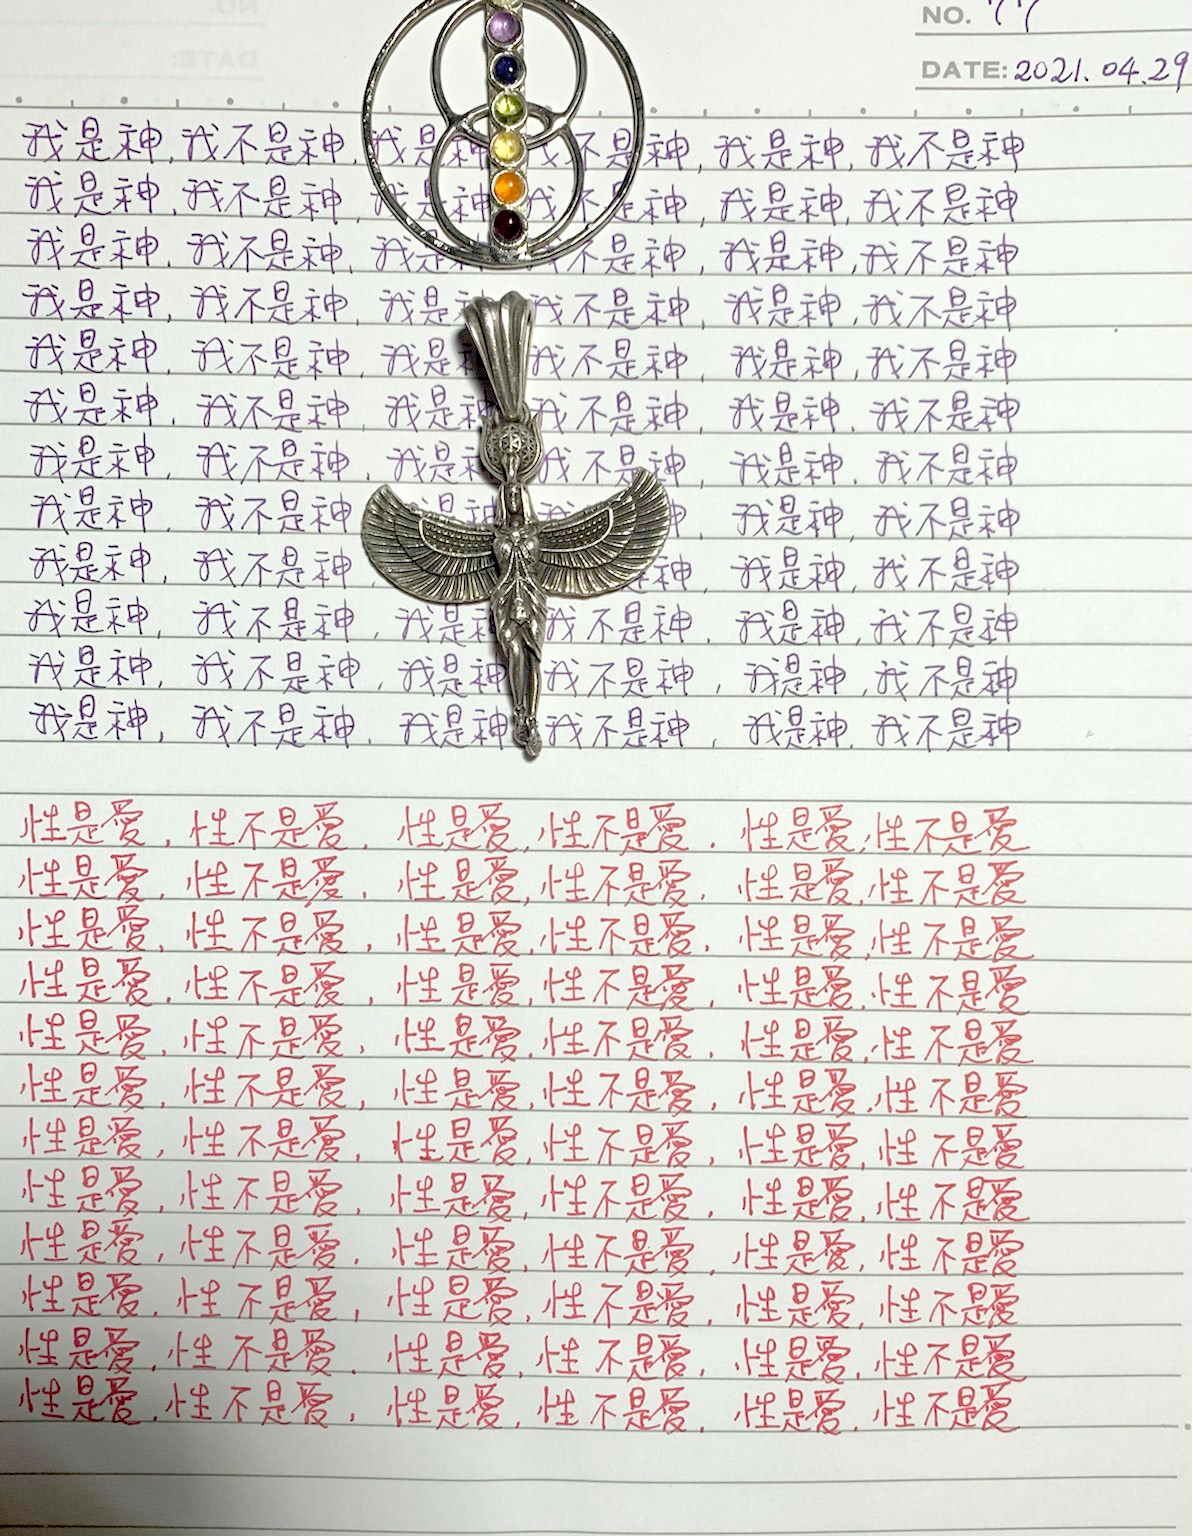 NO.
DATE: 2021.04.29
我是神, 我不是神, 我是神 我不是神, 我是神, 我不是神
我是神, 我不是神, 我是神 我不是神, 我是神, 我不是神
我是神, 我不是神, 我是 我不是神, 我是神, 我不是神
我是神, 我不是神, 我是 我不是神, 我是神, 我不是神
我是神, 我不是神, 我是 我不是神, 我是神, 我不是神
我是神, 我不是神, 我是神 我不是神, 我是神, 我不是神
我是神, 我不是神, 我是神 我不是神, 我是神, 我不是神
我是神, 我不是神 我是神, 我不是神
我是神, 我不是神, 是神, 我是神, 我不是神
我是神, 我不是神, 我是神 我不是神, 我是神, 我不是神
我是神, 我不是神, 我是神 我不是神, 我是神, 我不是神
我是神, 我不是神, 我是神 我不是神, 我是神, 我不是神
性是愛, 性不是愛, 性是愛, 性不是愛, 性是愛, 性不是愛
性是愛, 性不是愛, 性是愛, 性不是愛, 性是愛, 性不是愛
性是愛, 性不是愛, 性是愛, 性不是愛, 性是愛, 性不是愛
性是愛, 性不是愛, 性是愛, 性不是愛, 性是愛, 性不是愛
性是愛, 性不是愛, 性是愛, 性不是愛, 性是愛, 性不是愛
性是愛, 性不是愛, 性是愛, 性不是愛, 性是愛, 性不是愛
性是愛, 性不是愛, 性是愛, 性不是愛, 性是愛, 性不是愛
性是愛, 性不是愛, 性是愛, 性不是愛, 性是愛, 性不是愛
性是愛, 性不是愛, 性是愛, 性不是愛, 性是愛, 性不是愛
性是愛, 性不是愛, 性是愛, 性不是愛, 性是愛, 性不是愛
性是愛, 性不是愛, 性是愛, 性不是愛, 性是愛, 性不是愛
性是愛, 性不是愛, 性是愛, 性不是愛, 性是愛, 性不是愛